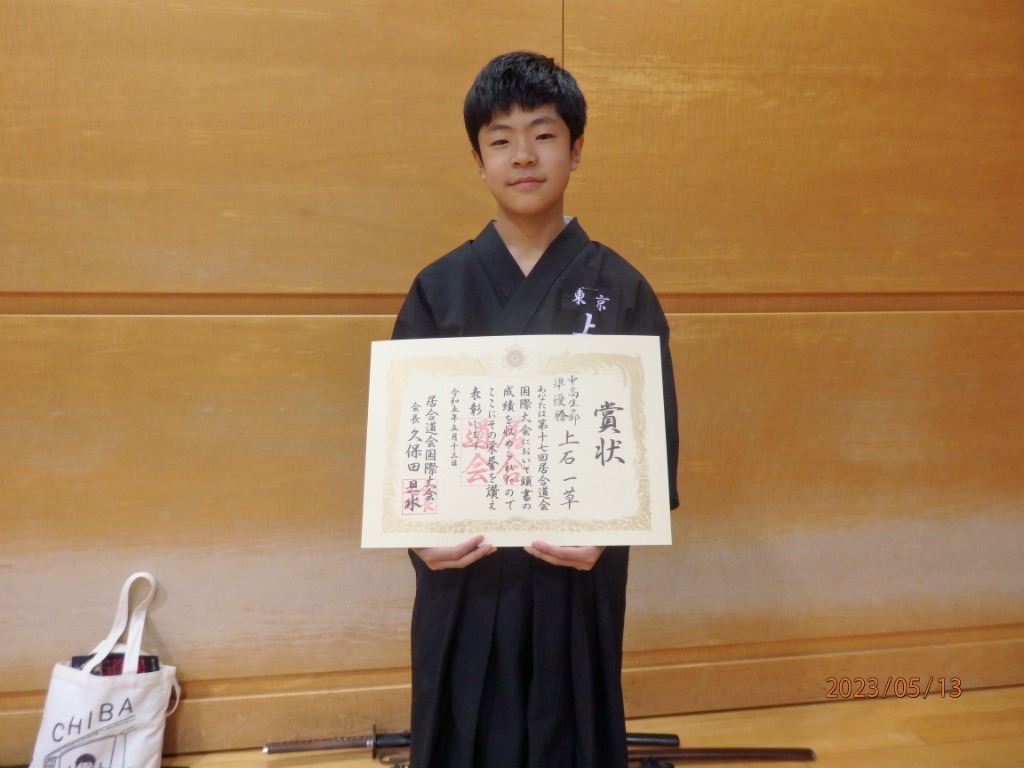 東京
上
賞状
中高生の部
準優勝
上石 一草
あなたは第十七回居合道会
国際大会において頭書の
成績を収められたので
ここにその栄誉を讃え
表彰します
令和五年五月十三日
居合道会国際大会
会長 久保田
居合
道会
CHIBA
2023/05/13